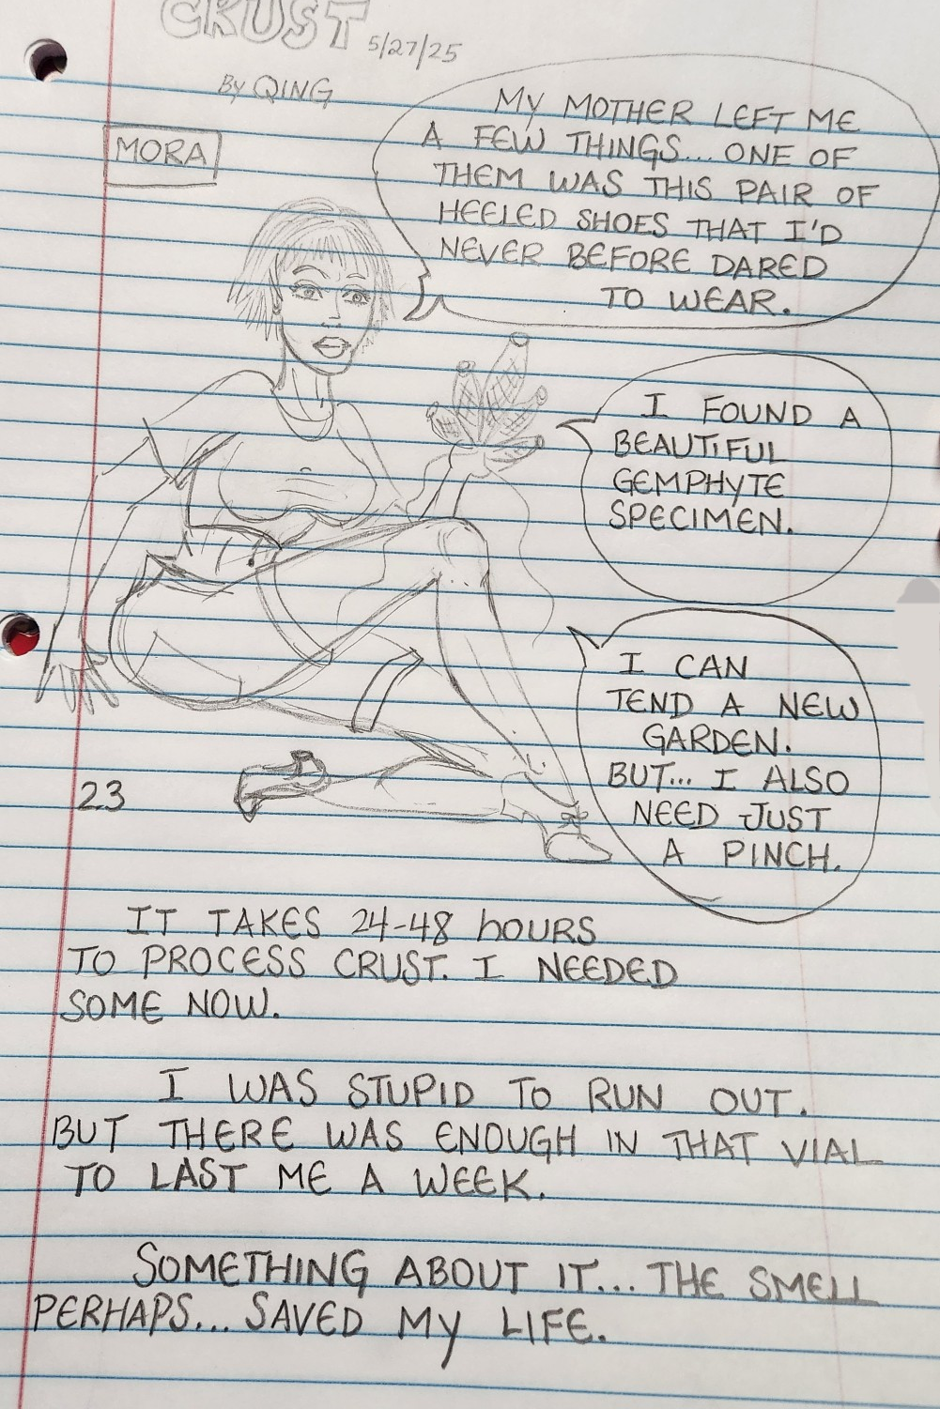 CRUST
5/27/25
By QING
MORA
MY MOTHER LEFT ME
A FEW THINGS... ONE OF
THEM WAS THIS PAIR OF
HEELED SHOES THAT I'D
NEVER BEFORE DARED
TO WEAR.
I FOUND A
BEAUTIFUL
GEMPHYTE
SPECIMEN.
I CAN
TEND A NEW
GARDEN.
BUT... I ALSO
NEED JUST
A PINCH.
23
IT TAKES 24-48 hOURS
TO PROCESS CRUST. I NEEDED
SOME NOW.
I WAS STUPID TO RUN OUT.
BUT THERE WAS ENOUGH IN THAT VIAL
TO LAST ME A WEEK.
SOMETHING ABOUT IT... THE SMELL
PERHAPS... SAVED MY LIFE.